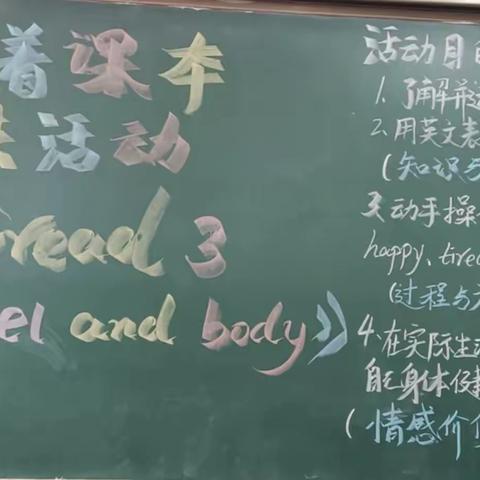 着课本
活动
read 3
el and body》
活动目
1. 了解并
2. 用英文表
(知识与
3. 动手操
happy、tired
(过程与方
4. 在实际生活
自己身体
(情感价值